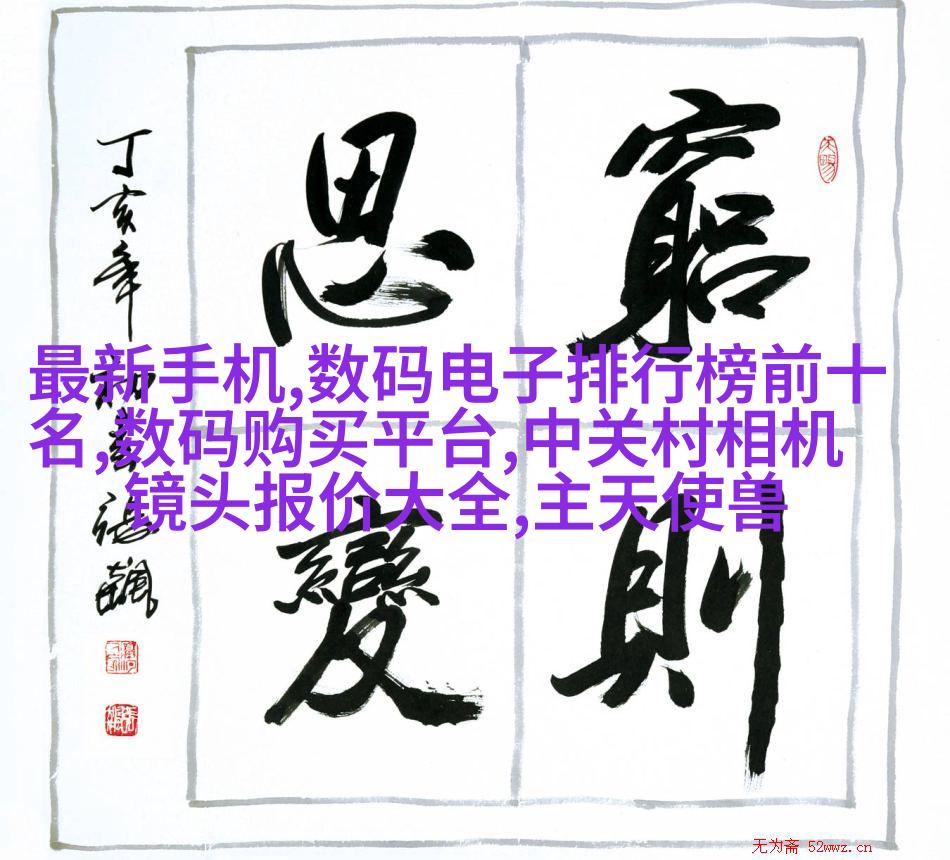 窮則
思變
丁亥年
最新手机,数码电子排行榜前十
名,数码购买平台,中关村相机
镜头报价大全,主天使兽
无为斋 52wwz.cn